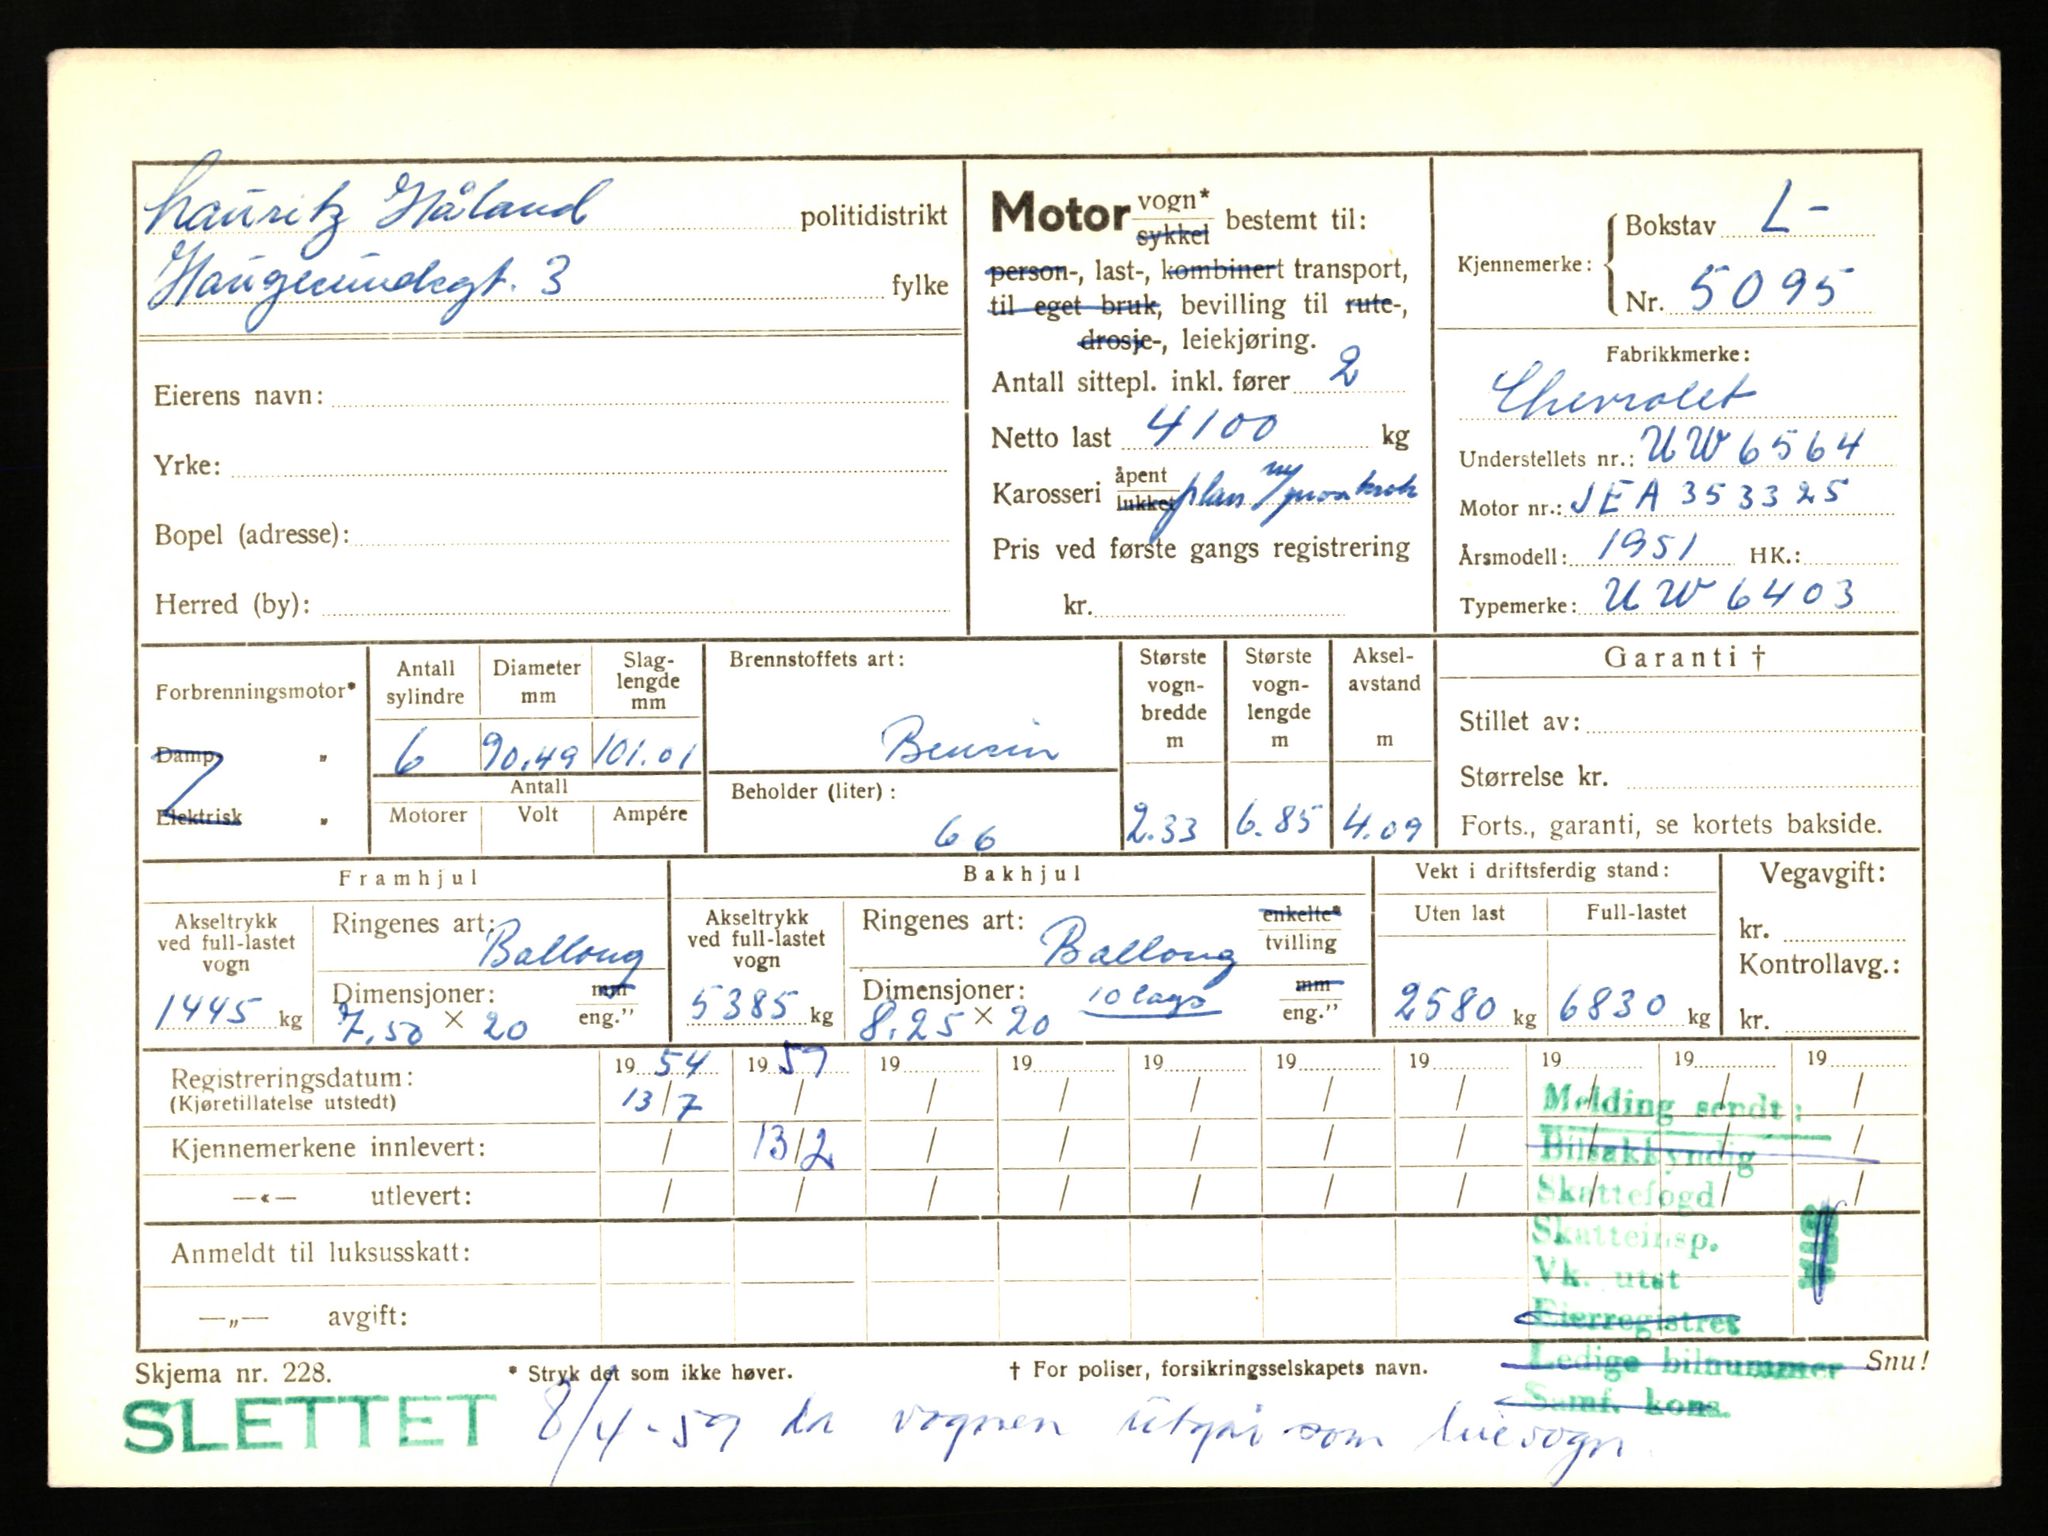 Lauritz Håland politidistrikt
Haugesundsgt. 3 fylke
Eierens navn:
Yrke:
Bopel (adresse):
Herred (by):
Motor vogn* sykkel bestemt til:
person-, last-, kombinert transport,
til eget bruk, bevilling til rute-,
drosje-, leiekjøring.
Antall sittepl. inkl. fører 2
Netto last 4100 kg
Karosseri åpent lukket plan ny
Pris ved første gangs registrering
kr.
Kjennemerke: Bokstav L-
Nr. 5095
Fabrikkmerke:
Chevrolet
Understellets nr.: UW 6564
Motor nr.: JEA 353325
Årsmodell: 1951 HK.:
Typemerke: UW 6403
Forbrenningsmotor*
Damp „
Elektrisk „
Antall sylindre 6
Diameter mm 90.49
Slag-lengde mm 101.01
Antall
Motorer Volt Ampére
Brennstoffets art:
Bensin
Beholder (liter):
66
Største vogn-bredde m 2.33
Største vogn-lengde m 6.85
Aksel-avstand m 4.09
Garanti †
Stillet av:
Størrelse kr.
Forts., garanti, se kortets bakside.
Framhjul
Akseltrykk ved full-lastet vogn
1445 kg
Ringenes art: Ballong
Dimensjoner: mm
7.50 × 20 eng."
Bakhjul
Akseltrykk ved full-lastet vogn
5385 kg
Ringenes art: Ballong enkelte* tvilling
Dimensjoner: 10 lags mm
8.25 × 20 eng."
Vekt i driftsferdig stand:
Uten last Full-lastet
2580 kg 6830 kg
Vegavgift:
kr.
Kontrollavg.:
kr.
19 54 19 59 19 19 19 19 19 19 19 19
Registreringsdatum: 13/7 / / / / / / / / /
(Kjøretillatelse utstedt)
Kjennemerkene innlevert: / 13/2 / / / / / / / /
—«— utlevert: / / / / / / / / / /
Anmeldt til luksusskatt:
—„— avgift:
Melding sendt:
Bilsakkyndig
Skattefogd
Skatteinsp.
Vk. utst
Eierregistret
Ledige bilnummer
Samf. kons.
Skjema nr. 228. * Stryk det som ikke høver. † For poliser, forsikringsselskapets navn. Snu!
SLETTET 8/4-59 da vognen utgår som leievogn